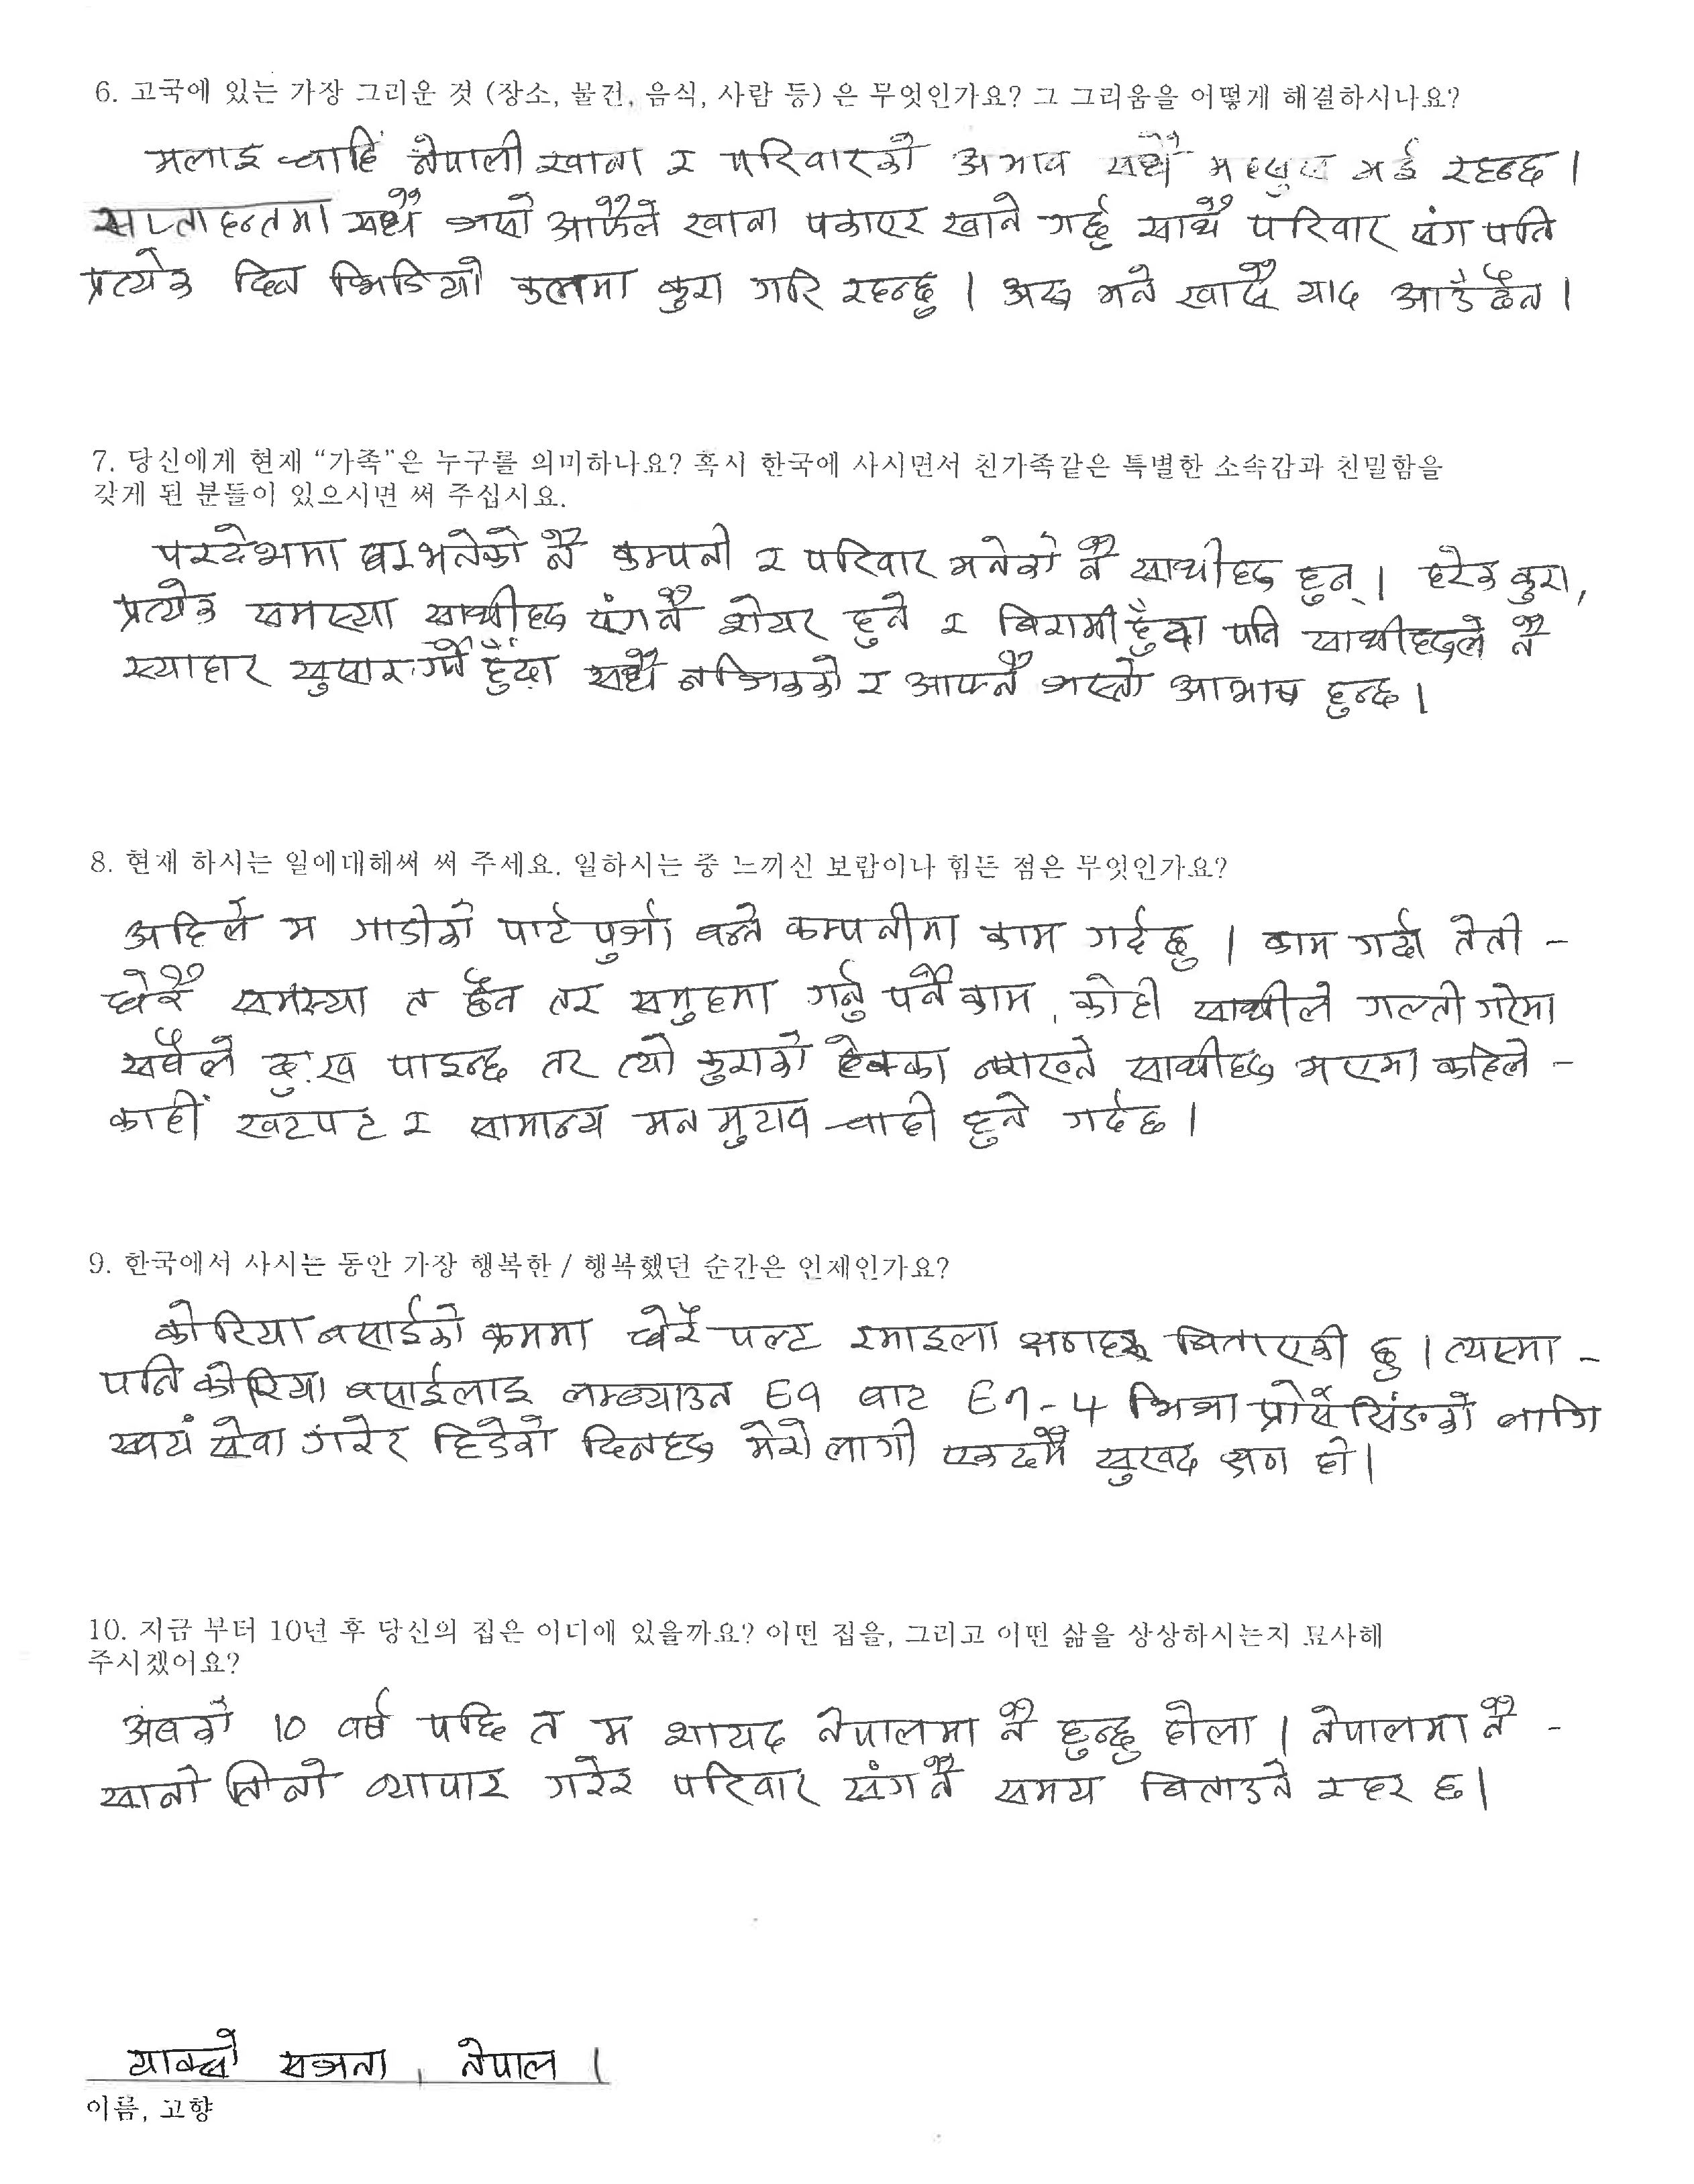 6. 고국에 있는 가장 그리운 것 (장소, 물건, 음식, 사람 등) 은 무엇인가요? 그 그리움을 어떻게 해결하시나요?
मलाइ चाहिं नेपाली खाना र परिवारको अभाव सधै महसुस भई रहन्छ ।
साप्ताहन्तमा सधै जसो आफैले खाना पकाएर खाने गर्छु साथै परिवार संग पनि
प्रत्येक दिन भिडियो कलमा कुरा गरि रहन्छु । अरु भने खासै याद आउँदैन ।
7. 당신에게 현재 “가족”은 누구를 의미하나요? 혹시 한국에 사시면서 친가족같은 특별한 소속감과 친밀함을
갖게 된 분들이 있으시면 써 주십시요.
परदेशमा घर भनेको नै कम्पनी र परिवार भनेको नै साथीहरु हुन् । हरेक कुरा,
प्रत्येक समस्या साथीहरु संगनै शेयर हुने र बिरामी हुँदा पनि साथीहरुले नै
स्याहार सुसार गर्ने हुँदा सधै नजिकको र आफ्नै जस्तो आभाष हुन्छ ।
8. 현재 하시는 일에대해써 써 주세요. 일하시는 중 느끼신 보람이나 힘든 점은 무엇인가요?
अहिले म गाडीको पार्टपुर्जा बन्ने कम्पनीमा काम गर्दछु । काम गर्दा तेती -
धेरै समस्या त छैन तर समुहमा गर्नु पर्ने काम, कोही साथीले गल्ती गरेमा
सबैले दु:ख पाइन्छ तर त्यो कुराको हेक्का नराख्ने साथीहरु भएमा कहिले -
काहीं खटपट र सामान्य मनमुटाव चाही हुने गर्दछ ।
9. 한국에서 사시는 동안 가장 행복한 / 행복했던 순간은 언제인가요?
कोरिया बसाईको क्रममा धेरै पल्ट रमाइला क्षणहरु बिताएकी छु । त्यसमा -
पनि कोरिया बसाईलाइ लम्ब्याउन E9 बाट E7-4 भिजा प्रोसेसिङको लागि
स्वयं सेवा गरेर हिडेको दिनहरु मेरो लागी एकदमै सुखद क्षण हो ।
10. 지금 부터 10년 후 당신의 집은 어디에 있을까요? 어떤 집을, 그리고 어떤 삶을 상상하시는지 묘사해
주시겠어요?
अबको 10 वर्ष पछि त म शायद नेपालमा नै हुन्छु होला । नेपालमा नै -
सानो तिनो व्यापार गरेर परिवार संगनै समय बिताउने रहर छ ।
सञ्जना, नेपाल ।
이름, 고향